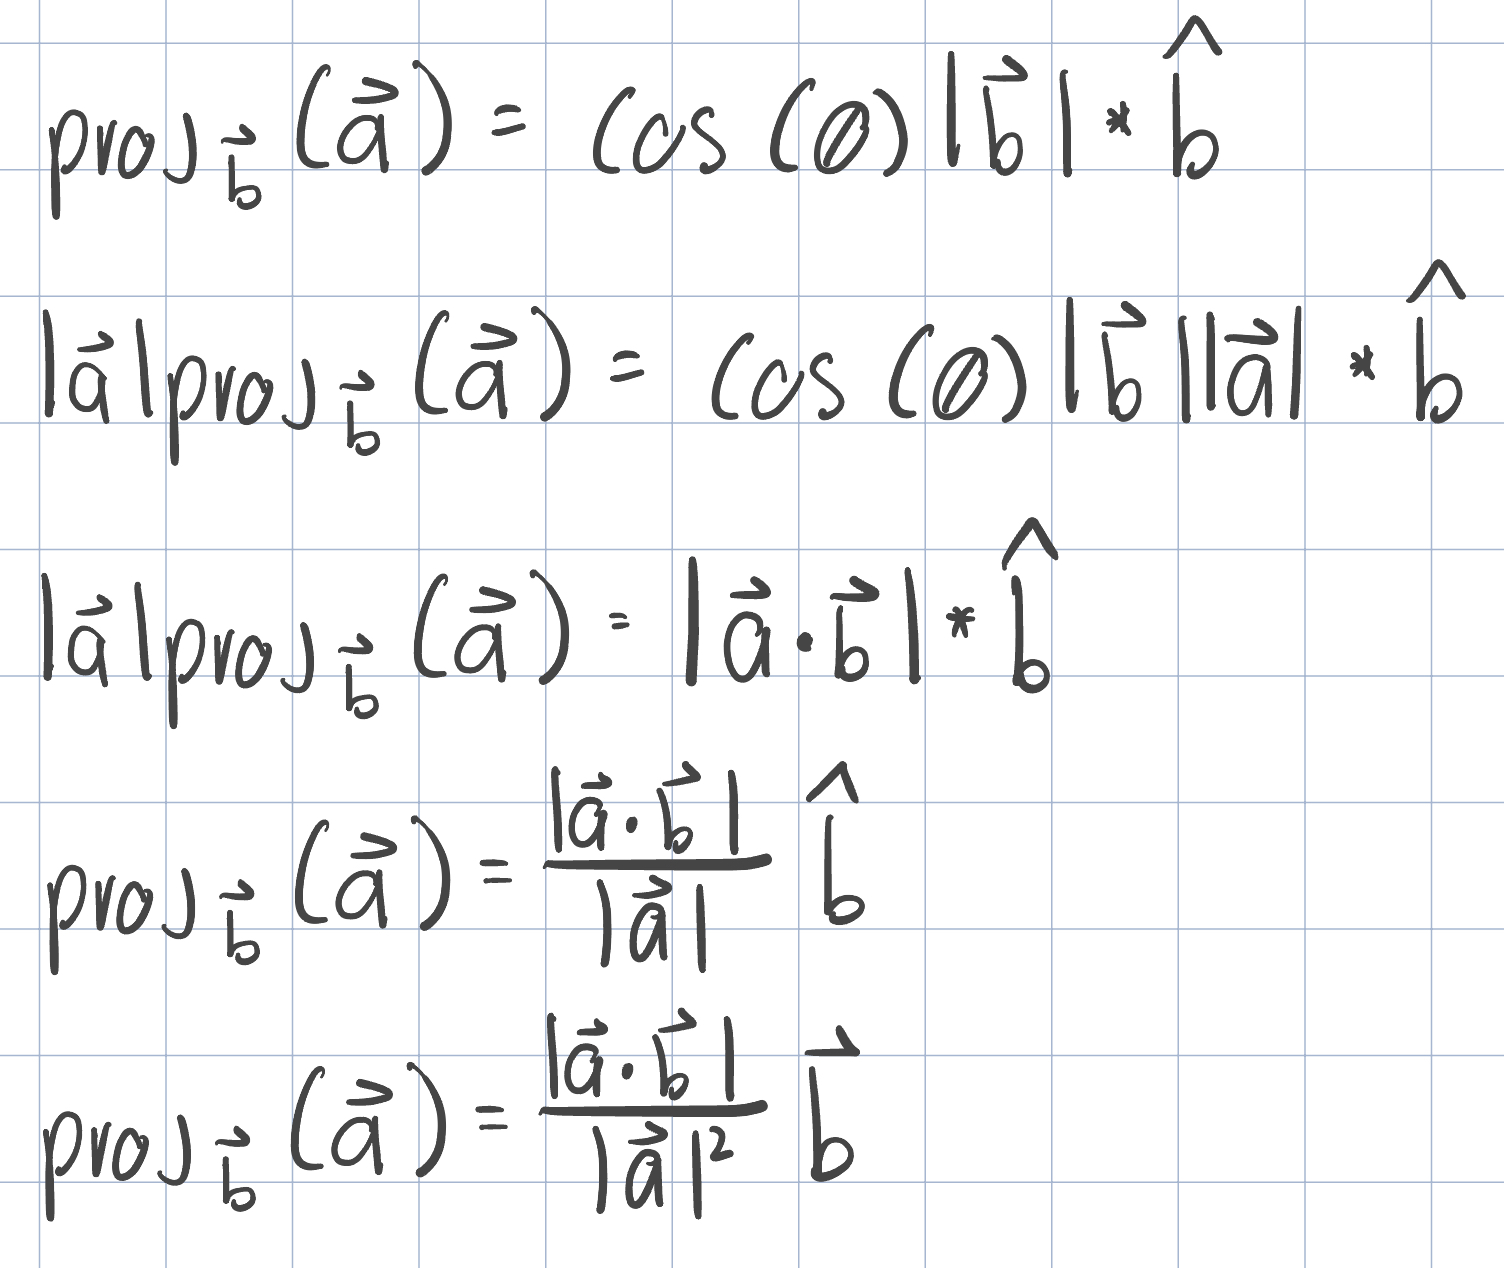 proj_{\vec{b}} (\vec{a}) = cos (θ) |\vec{b}| * \hat{b}
|\vec{a}| proj_{\vec{b}} (\vec{a}) = cos (θ) |\vec{b}||\vec{a}| * \hat{b}
|\vec{a}| proj_{\vec{b}} (\vec{a}) = |\vec{a} · \vec{b}| * \hat{b}
proj_{\vec{b}} (\vec{a}) = \frac{|\vec{a} · \vec{b}|}{|\vec{a}|} \hat{b}
proj_{\vec{b}} (\vec{a}) = \frac{|\vec{a} · \vec{b}|}{|\vec{a}|^2} \vec{b}